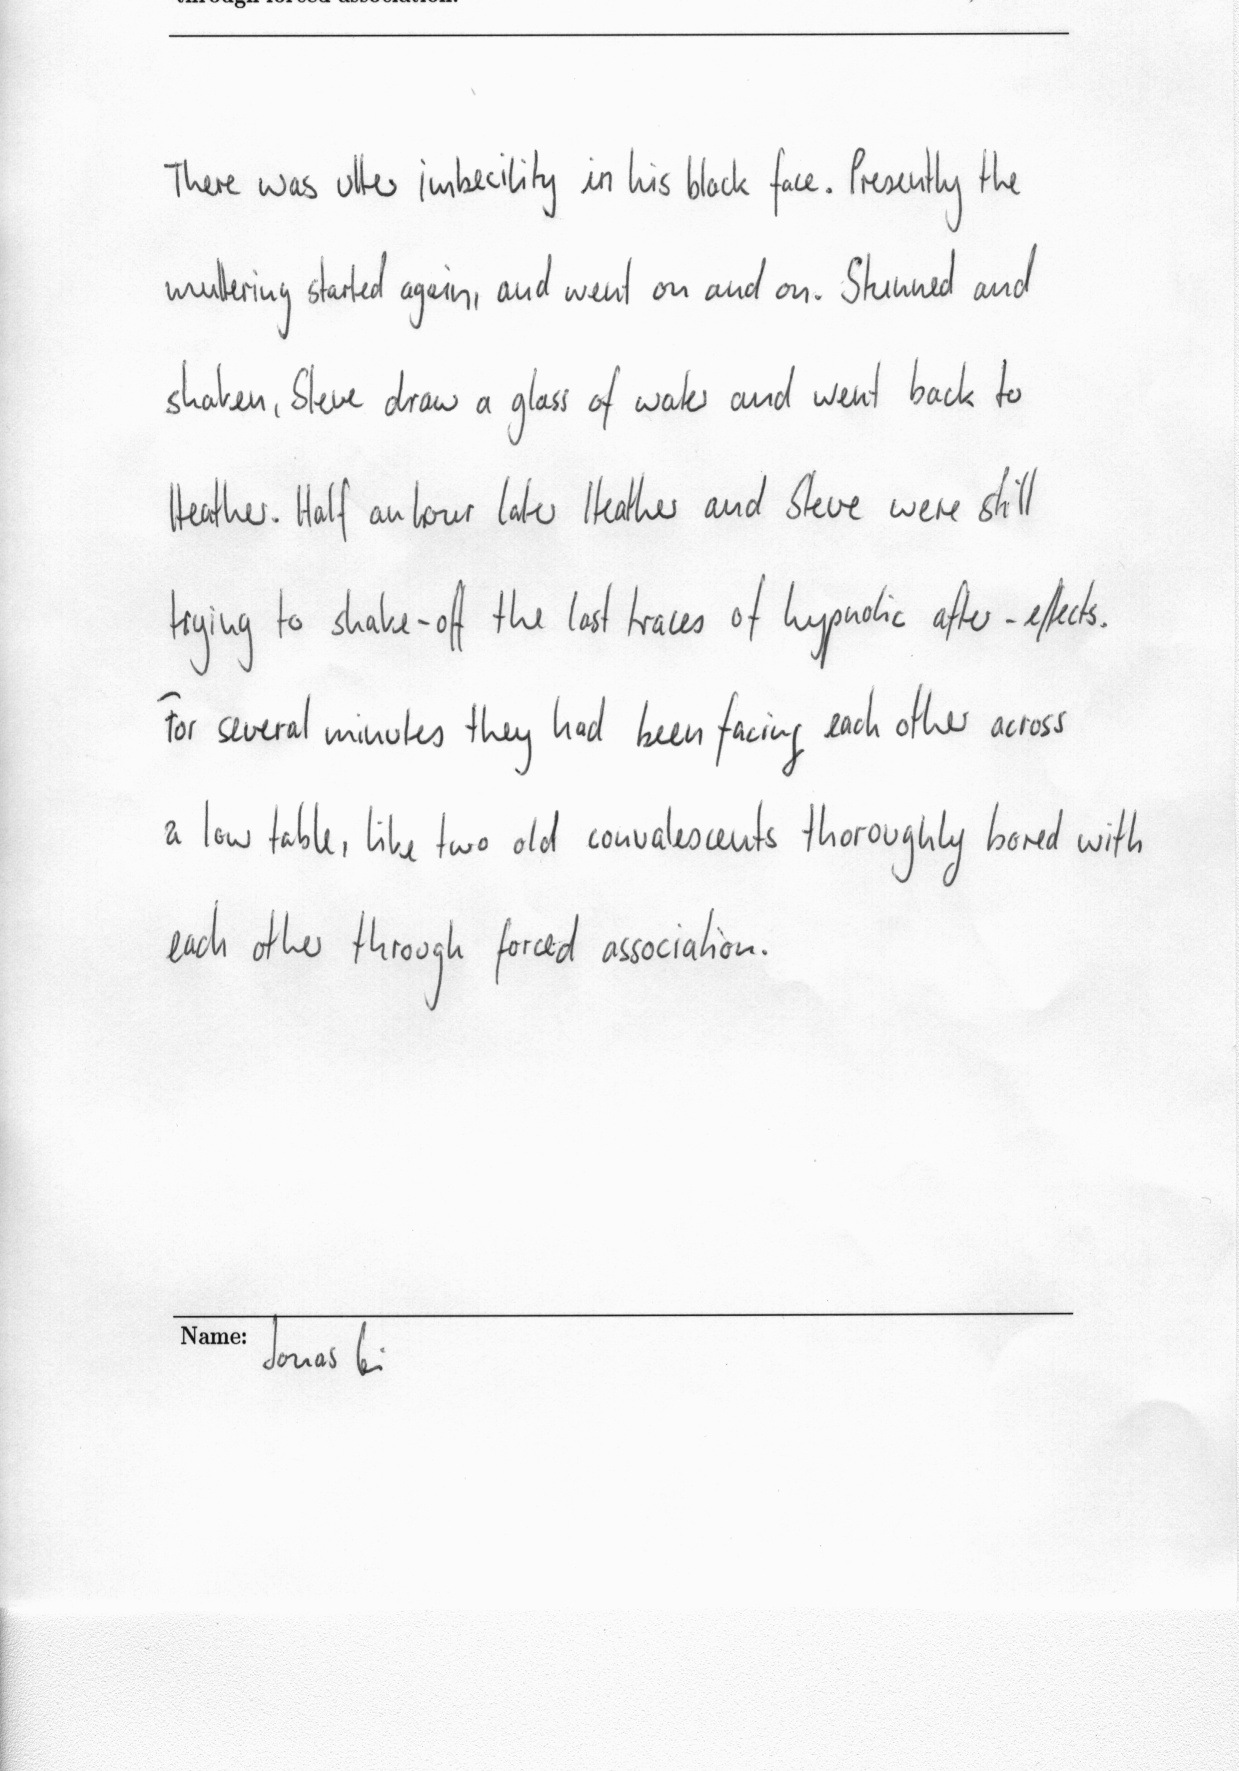 through forced association.
There was utter imbecility in his black face. Presently the
muttering started again, and went on and on. Stunned and
shaken, Steve draw a glass of water and went back to
Heather. Half an hour later Heather and Steve were still
trying to shake-off the last traces of hypnotic after-effects.
For several minutes they had been facing each other across
a low table, like two old convalescents thoroughly bored with
each other through forced association.
Name: Jonas